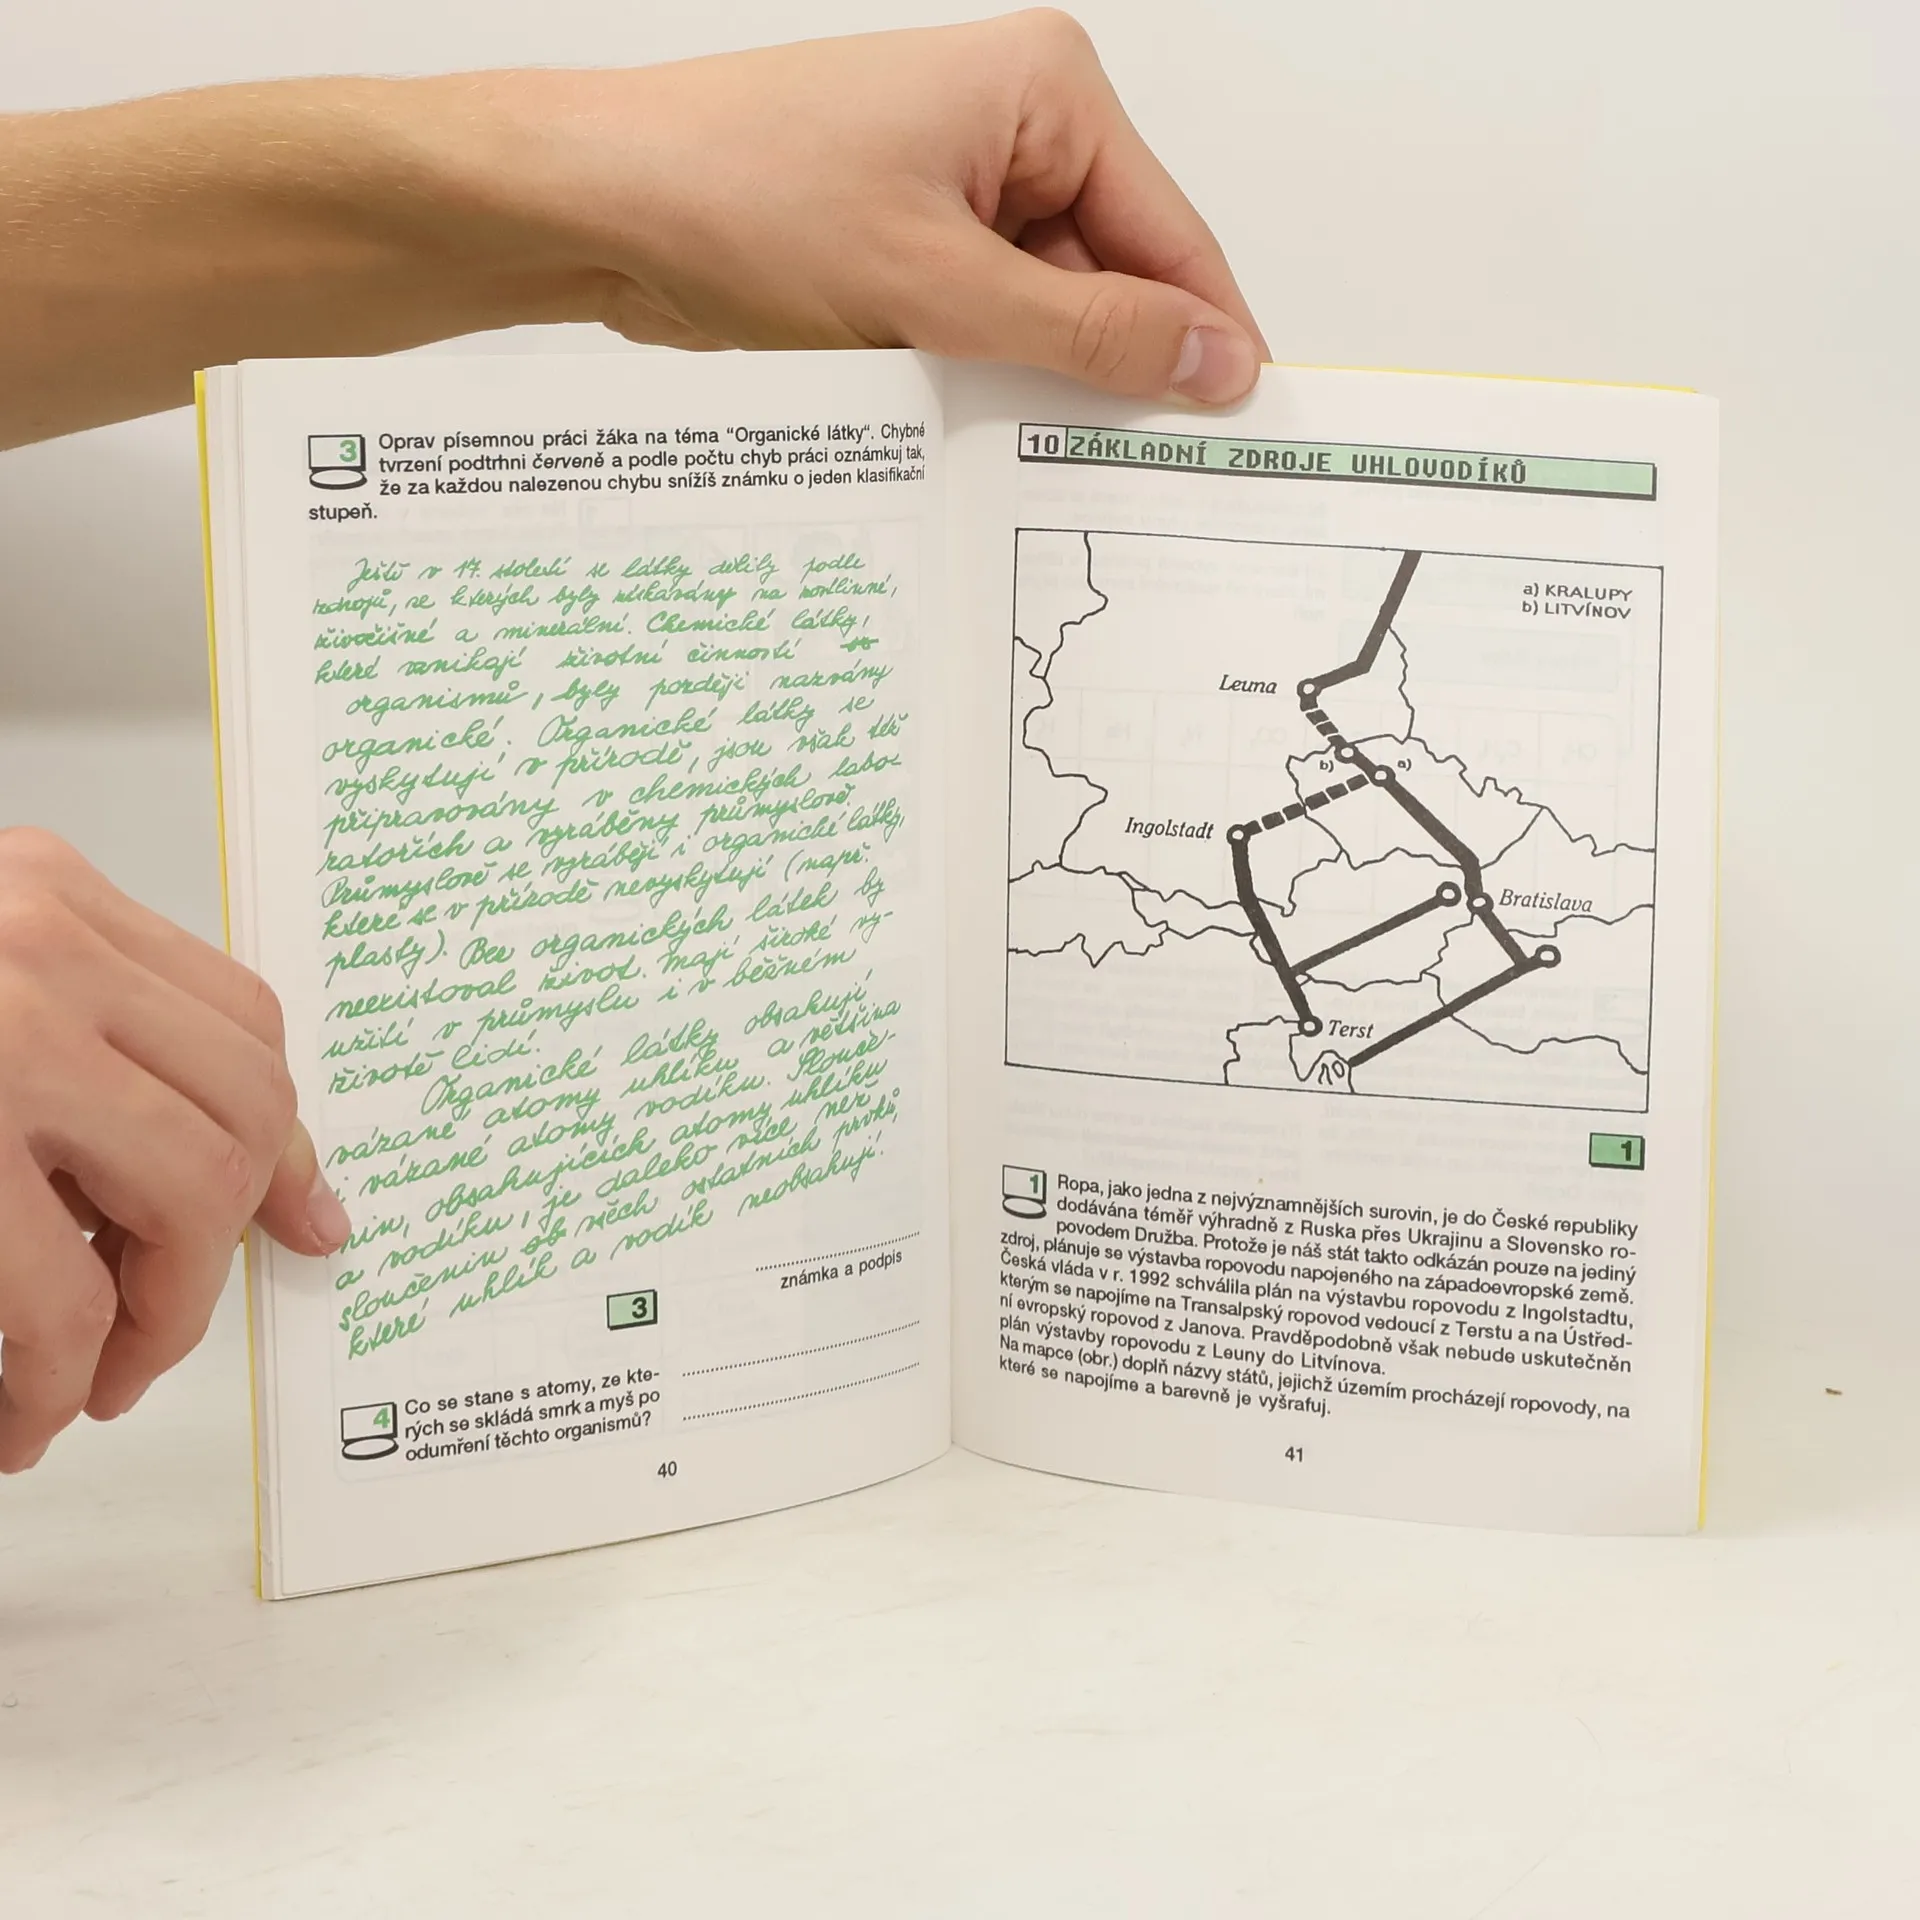 3
Oprav písemnou práci žáka na téma “Organické látky“. Chybné
tvrzení podtrhni červeně a podle počtu chyb práci oznámkuj tak,
že za každou nalezenou chybu snížíš známku o jeden klasifikační
stupeň.
Ještě v 17. století se látky dělily podle
zdrojů, ze kterých byly získávány na rostlinné,
živočišné a minerální. Chemické látky,
které vznikají životní činností
organismů, byly později nazvány
organické. Organické látky se
vyskytují v přírodě, jsou však též
připravovány v chemických labo-
ratořích a vyráběny průmyslově.
Průmyslově se vyrábějí i organické látky,
které se v přírodě nevyskytují (např.
plasty). Bez organických látek by
neexistoval život. Mají široké vy-
užití v průmyslu i v běžném
životě lidí.
Organické látky obsahují
vázané atomy uhlíku a většina
i vázané atomy vodíku. Slouče-
nin, obsahujících atomy uhlíku
a vodíku, je daleko více než
sloučenin všech ostatních prvků,
které uhlík a vodík neobsahují.
známka a podpis
3
4
Co se stane s atomy, ze kte-
rých se skládá smrk a myš po
odumření těchto organismů?
40
10 ZÁKLADNÍ ZDROJE UHLOVODÍKŮ
a) KRALUPY
b) LITVÍNOV
Leuna
b)
a)
Ingolstadt
Bratislava
Terst
1
1
Ropa, jako jedna z nejvýznamnějších surovin, je do České republiky
dodávána téměř výhradně z Ruska přes Ukrajinu a Slovensko ro-
povodem Družba. Protože je náš stát takto odkázán pouze na jediný
zdroj, plánuje se výstavba ropovodu napojeného na západoevropské země.
Česká vláda v r. 1992 schválila plán na výstavbu ropovodu z Ingolstadtu,
kterým se napojíme na Transalpský ropovod vedoucí z Terstu a na Ústřed-
ní evropský ropovod z Janova. Pravděpodobně však nebude uskutečněn
plán výstavby ropovodu z Leuny do Litvínova.
Na mapce (obr.) doplň názvy států, jejichž územím procházejí ropovody, na
které se napojíme a barevně je vyšrafuj.
41